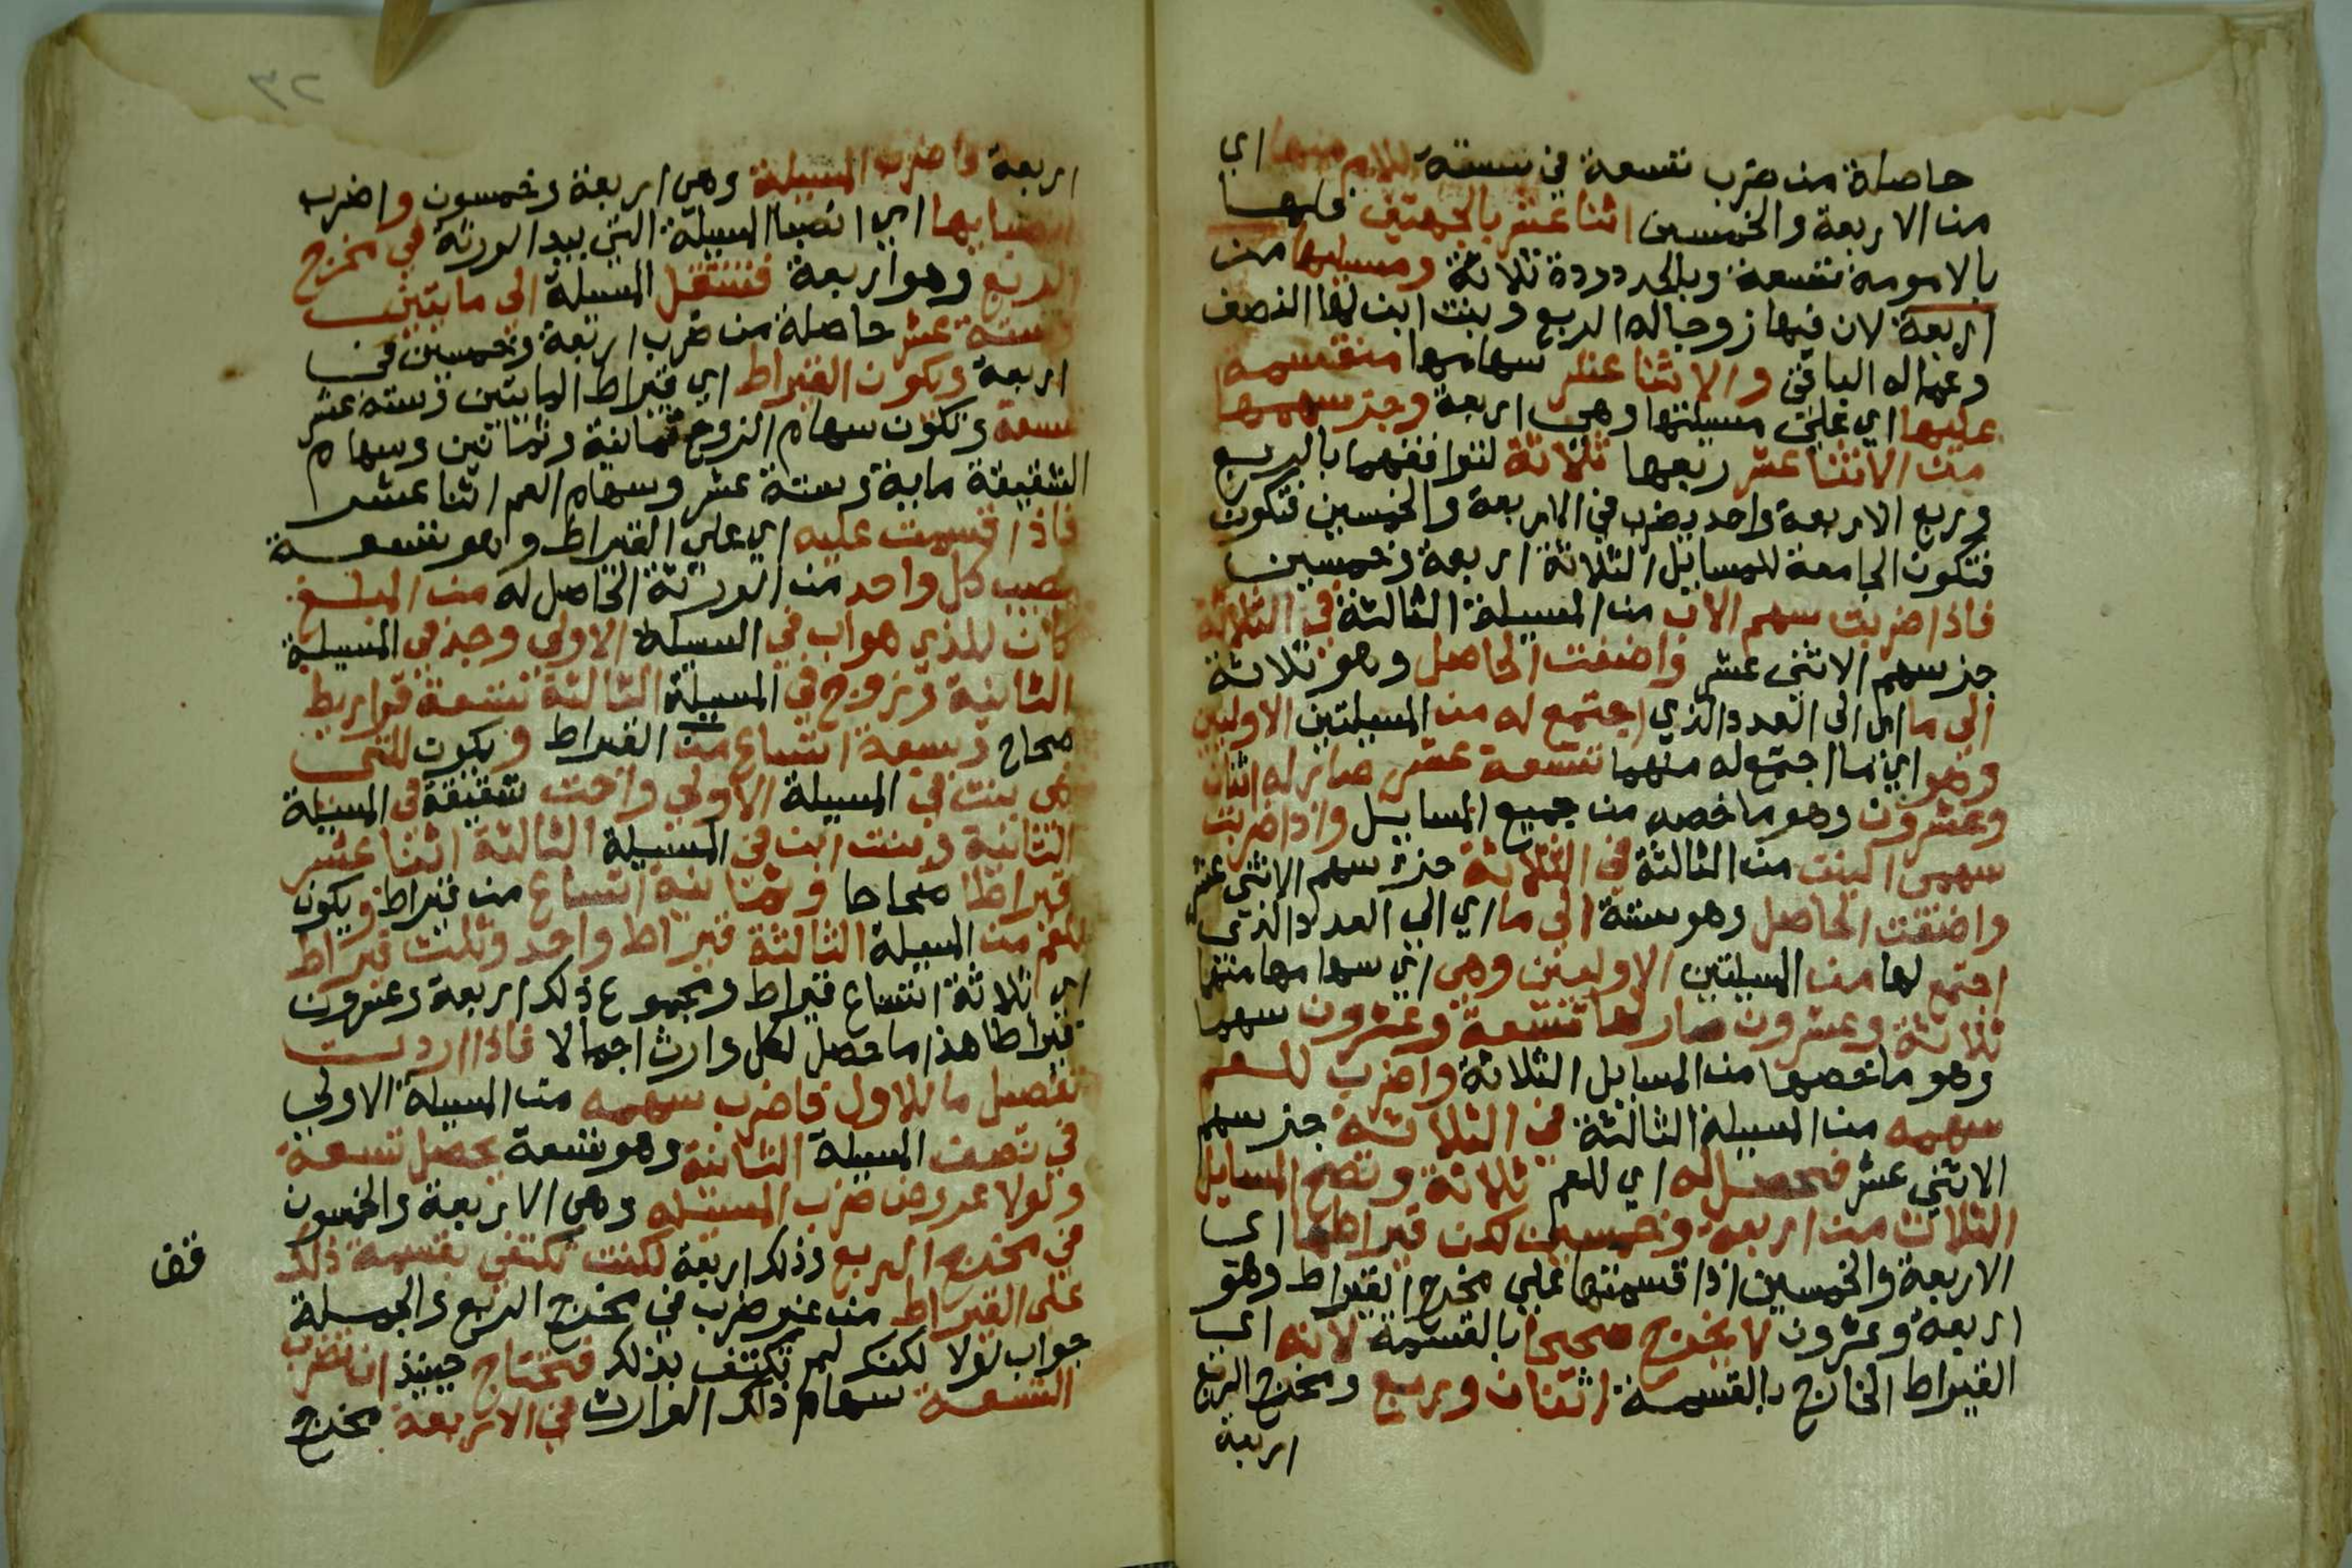 حاصلة من ضرب تسعة في ستة للام منها اي
من الاربعة والخمسين اثنا عشر بالجهتين فلها
بالامومة تسعة وبالجدودة ثلاثة ومسيلتها من
اربعة لان فيها زوجا له الربع وبنت ابن لها النصف
وعما له الباقي والاثنا عشر سهامها منقسمة
عليها اي على مسيلتها وهي اربعة وجز سهمها
من الاثنا عشر ربعها ثلاثة لتوافقهما بالربع
وربع الاربعة واحد يضرب في الاربعة والخمسين فتكون
فتكون الجامعة للمسايل الثلاثة اربعة وخمسين
فاذا ضربت سهم الاب من المسيلة الثالثة في الثلاثة
جز سهم الاثنى عشر واضفت الحاصل وهو ثلاثة
الى ما اي الى العدد الذي اجتمع له من المسيلتين الاوليين
وهو اي ما اجتمع له منهما تسعة عشر صار له اثنان
وعشرون وهو ما خصه من جميع المسايل واذا ضربت
سهمى البنت من الثالثة في الثلاثة جزء سهم الاثنى عشر
واضفت الحاصل وهو ستة الى ما اي الى العدد الذي
اجتمع لها من المسيلتين الاوليين وهى اي سهامها منهما
ثلاثة وعشرون صار لها تسعة وعشرون سهما
وهو ما خصها من المسايل الثلاثة واضرب للعم
سهمه من المسيلة الثالثة في الثلاثة جز سهم
الاثنى عشر فحصل له اي للعم ثلاثة وتصح المسايل
الثلاث من اربعة وخمسين لكن قيراطها اي
الاربعة والخمسين اذا قسمتها على مخرج القيراط وهو
اربعة وعشرون لا يخرج صحيحا بالقسمة لانه اي
القيراط الخارج بالقسمة اثنان وربع ومخرج الربع
اربعة
٢٣
اربعة فاضرب المسيلة وهى اربعة وخمسون واضرب
انصبايها اي انصبا المسيلة التي بيد الورثة في مخرج
الربع وهو اربعة فتنتقل المسيلة الى مايتين
وستة عشر حاصلة من ضرب اربعة وخمسين في
اربعة ويكون القيراط اي قيراط المايتين وستة عشر
تسعة وتكون سهام الزوج ثمانية وثمانين وسهام
الشقيقة ماية وستة عشر وسهام العم اثنا عشر
فاذا قسمت عليه اي على القيراط وهو تسعة
نصيب كل واحد من الورثة الحاصل له من المبلغ
كان للذي هو اب في المسيلة الاولى وجد في المسيلة
الثانية وزوج في المسيلة الثالثة تسعة قراريط
صحاح وسبعة اتساع من القيراط ويكون للتى
هى بنت في المسيلة الاولى واخت شقيقة في المسيلة
الثانية وبنت ابن في المسيلة الثالثة اثنا عشر
قيراطا صحاحا وثمانية اتساع من قيراط ويكون
للعم من المسيلة الثالثة قيراط واحد وثلث قيراط
اي ثلاثة اتساع قيراط ومجموع ذلك اربعة وعشرون
قيراطا هذا ما حصل لكل وارث اجمالا فاذا اردت
تفصيل ما للاول فاضرب سهمه من المسيلة الاولى
في نصف المسيلة الثانية وهو تسعة يحصل تسعة
ولولا عروض ضرب المسئلة وهى الاربعة والخمسون
في مخرج الربع وذلك اربعة لكنت تكتفى بقسمة ذلك
على القيراط من غير ضرب في مخرج الربع والجملة
جواب لولا لكنك لم تكتف بذلك فتحتاج حينيذ ان تضرب
التسعة سهام ذلك الوارث في الاربعة مخرج
قف